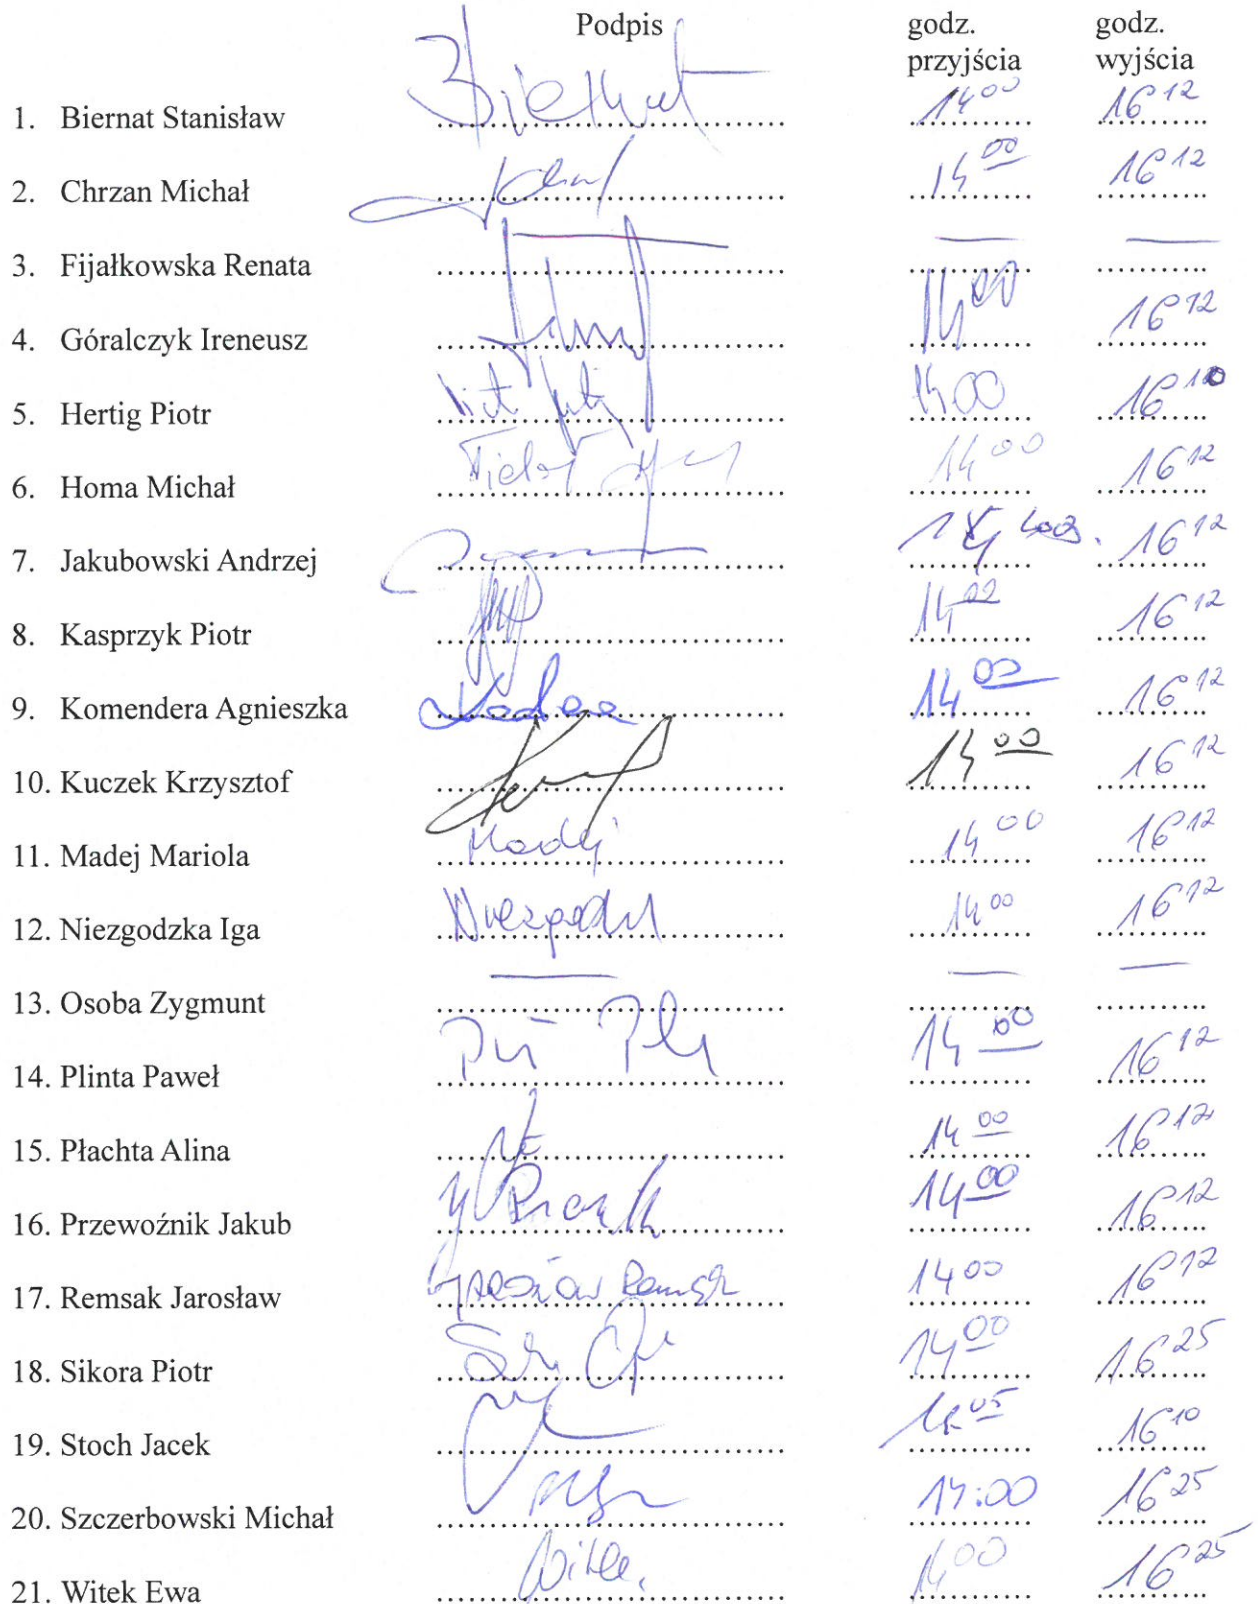 Podpis godz. przyjścia godz. wyjścia
1. Biernat Stanisław Biernat 14 00 16 12
2. Chrzan Michał 14 00 16 12
3. Fijałkowska Renata — — —
4. Góralczyk Ireneusz 14 00 16 12
5. Hertig Piotr 14 00 16 10
6. Homa Michał 14 00 16 12
7. Jakubowski Andrzej 16 12
8. Kasprzyk Piotr 14 02 16 12
9. Komendera Agnieszka 14 00 16 12
10. Kuczek Krzysztof 14 00 16 12
11. Madej Mariola Madej 14 00 16 12
12. Niezgodzka Iga 14 00 16 12
13. Osoba Zygmunt — — —
14. Plinta Paweł 14 00 16 12
15. Płachta Alina 14 00 16 12
16. Przewoźnik Jakub 14 00 16 12
17. Remsak Jarosław 14 00 16 12
18. Sikora Piotr 14 00 16 25
19. Stoch Jacek 16 10
20. Szczerbowski Michał 14:00 16 25
21. Witek Ewa 14 00 16 25